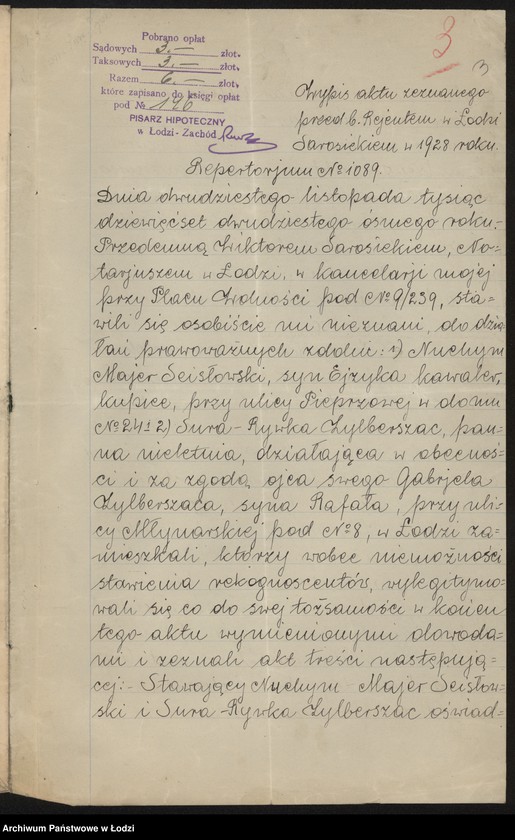 Pobrano opłat
Sądowych 3.— złot.
Taksowych 3.— złot.
Razem 6.— złot.
które zapisano do księgi opłat
pod № 196
PISARZ HIPOTECZNY
w Łodzi - Zachód
3
3
Wypis aktu zeznanego
przed b. Rejentem w Łodzi
Sarosiekiem w 1928 roku.
Repertorjum № 1089.
Dnia dwudziestego listopada tysiąc
dziewięćset dwudziestego ósmego roku.-
Przedemną Wiktorem Sarosiekiem, No-
tarjuszem w Łodzi, w kancelarji mojej
przy Placu Wolności pod № 9/239, sta-
wili się osobiście mi nieznani, do dzia
łań prawoważnych zdolni: 1) Nuchym
Majer Seisłowski, syn Ejzyka kawaler,
kupiec, przy ulicy Pieprzowej w domu
№ 24 i 2) Sura-Rywka Zylberszac, pan-
na nieletnia, działająca w obecnoś-
ci i za zgodą ojca swego Gabrjela
Zylberszaca, syna Rafała, przy uli-
cy Młynarskiej pod № 8, w Łodzi za-
mieszkali, którzy wobec niemożności
stawienia rekognoscentów, wylegitymo-
wali się co do swej tożsamości w końcu
tego aktu wymienionymi dowoda-
mi i zeznali akt treści następują-
cej:- Stawający Nuchym Majer Seisłow-
ski i Sura-Rywka Zylberszac oświad-
Archiwum Państwowe w Łodzi